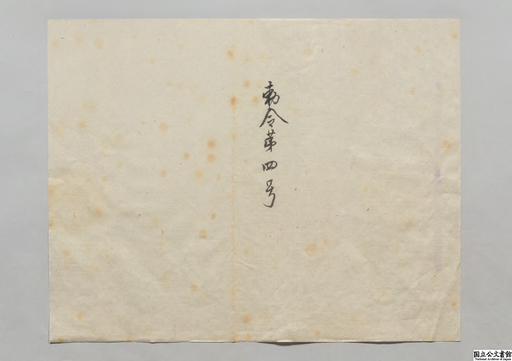 勅令第四号
国立公文書館
National Archives of Japan